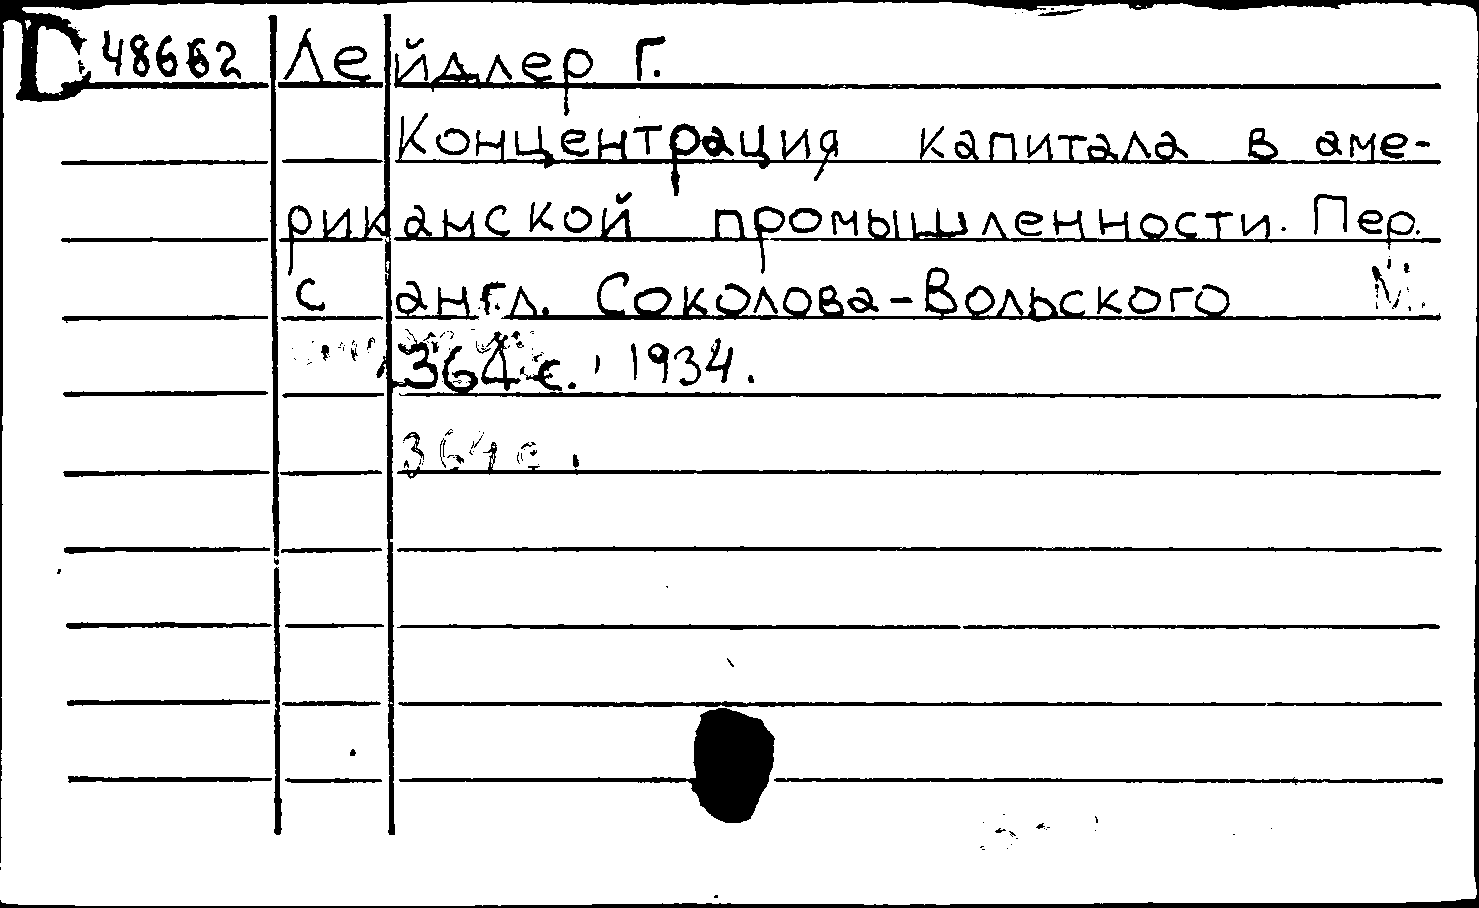 D 48662 Лейдлер Г.
Концентрация капитала в аме-
риканской промышленности. Пер.
с англ. Соколова-Вольского М.
364 с. 1934.
364 с.